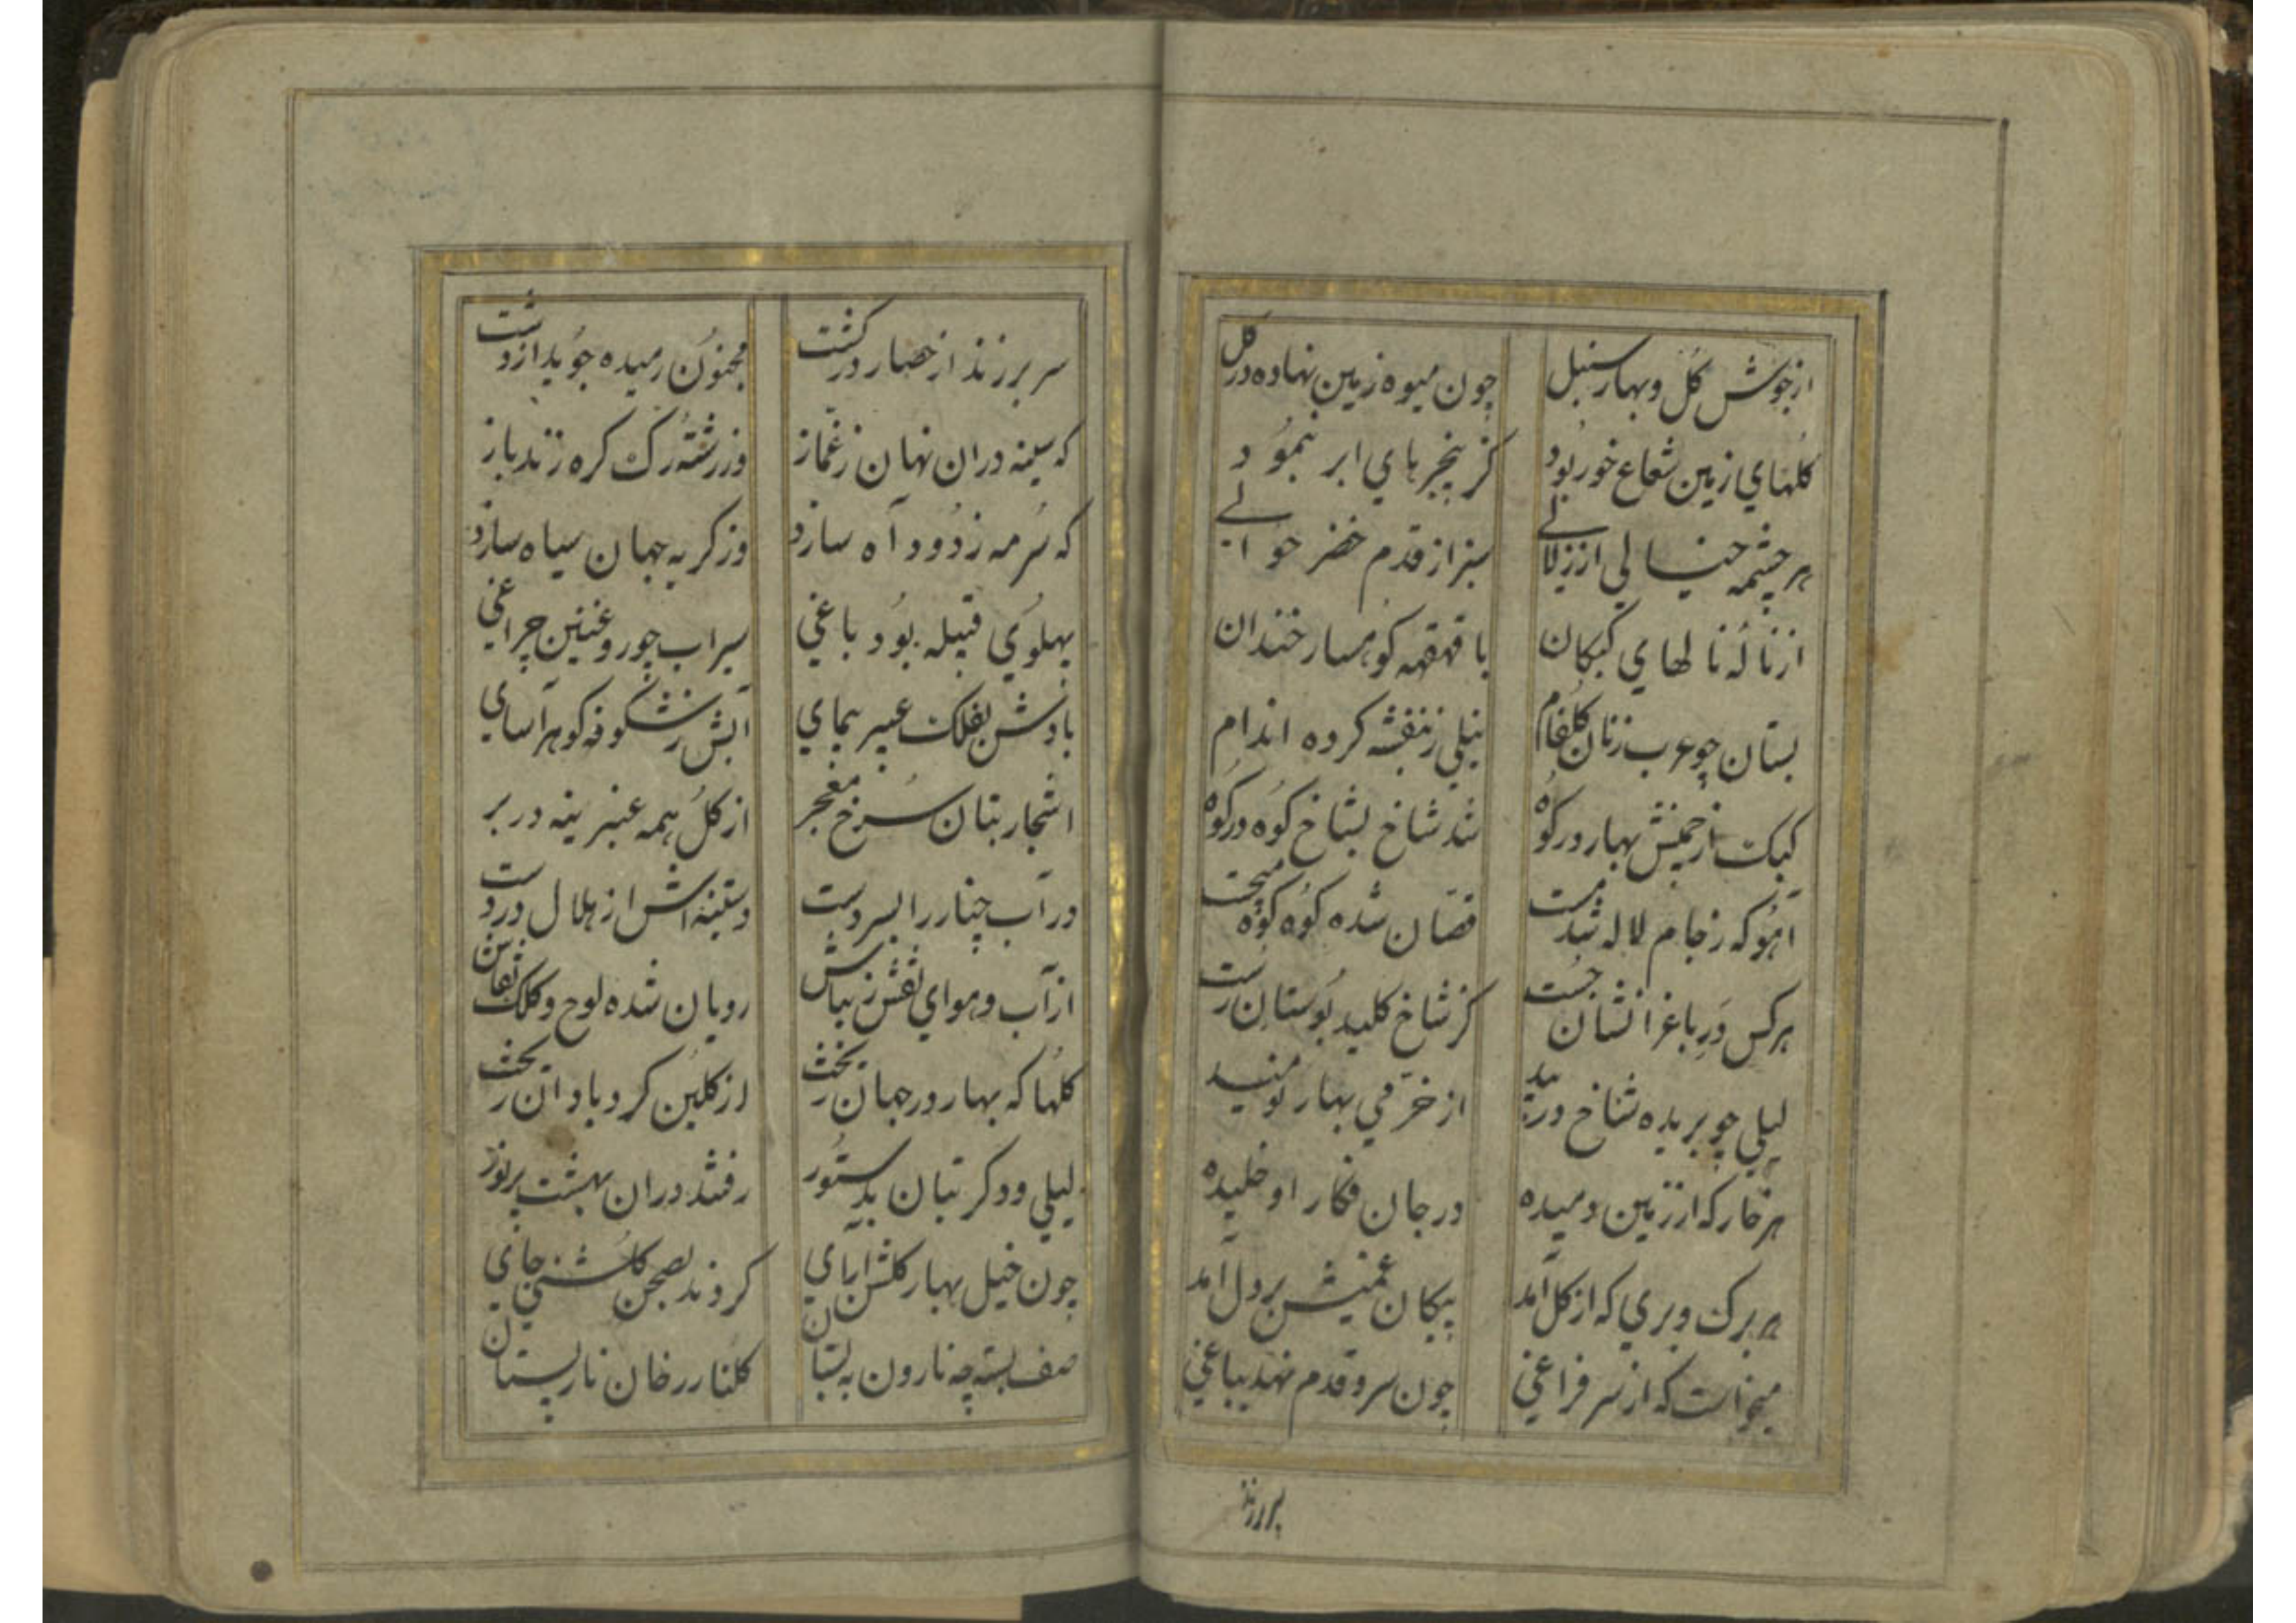 ازجوش گل و بهار سنبل چون میوه زمین نهاده در گل
کلهای زمین شعاع خور بود کز پنجرهای ابر بنمود
هر چشمه خیالی از زلالی سبز از قدم خضر حوالی
از ناله نالهای کبکان با قهقهه کوهسار خندان
بستان چو عرب زنان کلفام نیلی ز بنفشه کرده اندام
کبک از بهار در کوه شد شاخ بشاخ کوه در کوه
آهو که ز جام لاله شد مست رقصان شده کوه کوه میجست
هرکس در باغ را نشان جست کز شاخ کلید بوستان رست
لیلی چو بریده شاخ در بید از خرمی بهار نومید
هر خار که از زمین دمیده در جان فکار او خلیده
هر برک و بری که از کل آمد پیکان غمیش بر دل آمد
میخواست که از سر فراغی چون سرو قدم نهد بباغی
سر برزند
سر برزند از حصار در کشت مجنون رمیده جوید از دشت
که سینه دران نهان ز غماز وز رشته رک کره زند باز
که سرمه ز دود آه سازد وز کریه جهان سیاه سازد
پهلوی قبیله بود باغی سیراب چو روغنین چراغی
بادش بفلک عبیر پیمای آبش ز شکوفه کوهرآسای
اشجار بتان سرخ معجر از کل همه عنبرینه در بر
در آب چنار را بسر دست دستینه اش از هلال در دست
از آب و هوای نقش زیباش رویان شده لوح و کلک نقاش
کلها که بهار در جهان ریخت از کلبن کرد باد آن ریخت
لیلی و دکر بتان بدستور رفتند دران بهشت پرنور
چون خیل بهار کلشن ارای کردند بصحن کلشنی جای
صف بسته چه نارون به بستان کلنار رخان نارپستان